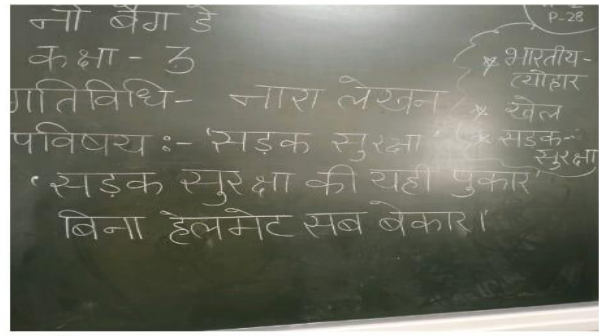 नो बैग डे
कक्षा - 3
गतिविधि - नारा लेखन
पविषय :- 'सड़क सुरक्षा'
'सड़क सुरक्षा की यही पुकार
बिना हेलमेट सब बेकार।'
P-28
* भारतीय-
त्योहार
* खेल
* सड़क-
सुरक्षा